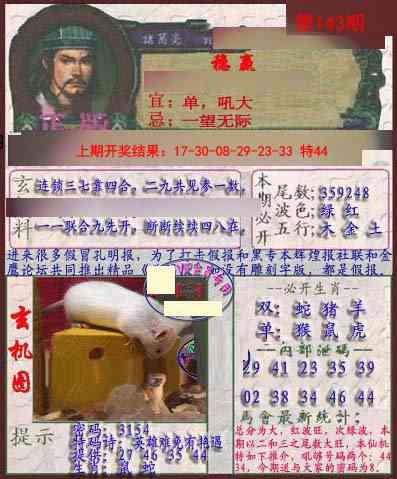 第143期
諸葛亮
稳赢
宜：单，吼大
忌：一望无际
上期开奖结果：17-30-08-29-23-33 特44
玄
料
连锁三七靠四合，二九共见参一数，
一一联合九先开，断断续续四八在，
本期必开
尾数:359248
波色:绿 红
五行:木 金 土
进来很多假冒孔明报，为了打击假报和黑专本辉煌报社联和金
鹰论坛共同推出精品《 没有雕刻字版，都是假报，
玄机图
--必开生肖--
双: 蛇 猪 羊
单: 猴 鼠 虎
--内部泄码--
29 41 23 35 39
02 38 34 46 44
馬會最新統計:
总分为大，红波旺，次绿波，本
期以二和三之尾数大旺，本仙机
特如下推介，吼够号码两个：44
34，今期送与大家的密码为8。
提示
密码: 3154
特码诗: 英雄难免有艳遇
提供: 27 46 35 44
生肖: 鼠 蛇